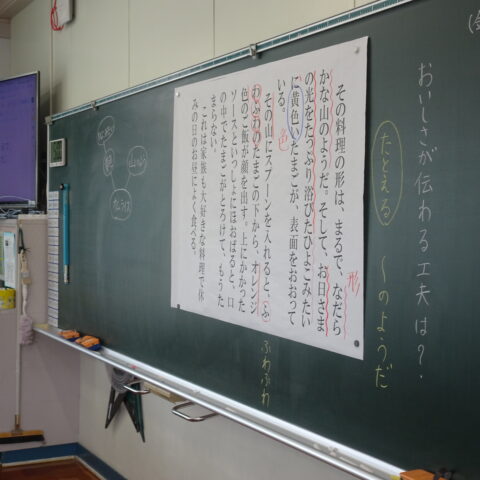 おいしさが伝わる工夫は?
たとえる 〜のようだ
その料理の形は、まるで、なだら
かな山のようだ。そして、お日さま
の光をたっぷり浴びたひよこみたい
に黄色いたまごが、表面をおおって
いる。
その山にスプーンを入れると、ふ
わふわのたまごの下から、オレンジ
色のご飯が顔を出す。上にかかった
ソースといっしょにほおばると、口
の中でたまごがとろけて、もうた
まらない。
これは家族も大好きな料理で休
みの日のお昼によく食べる。
形
色
ふわふわ
オムライス